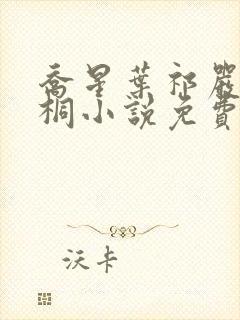 喬星葉祁嚴
桐小說免費
沃卡